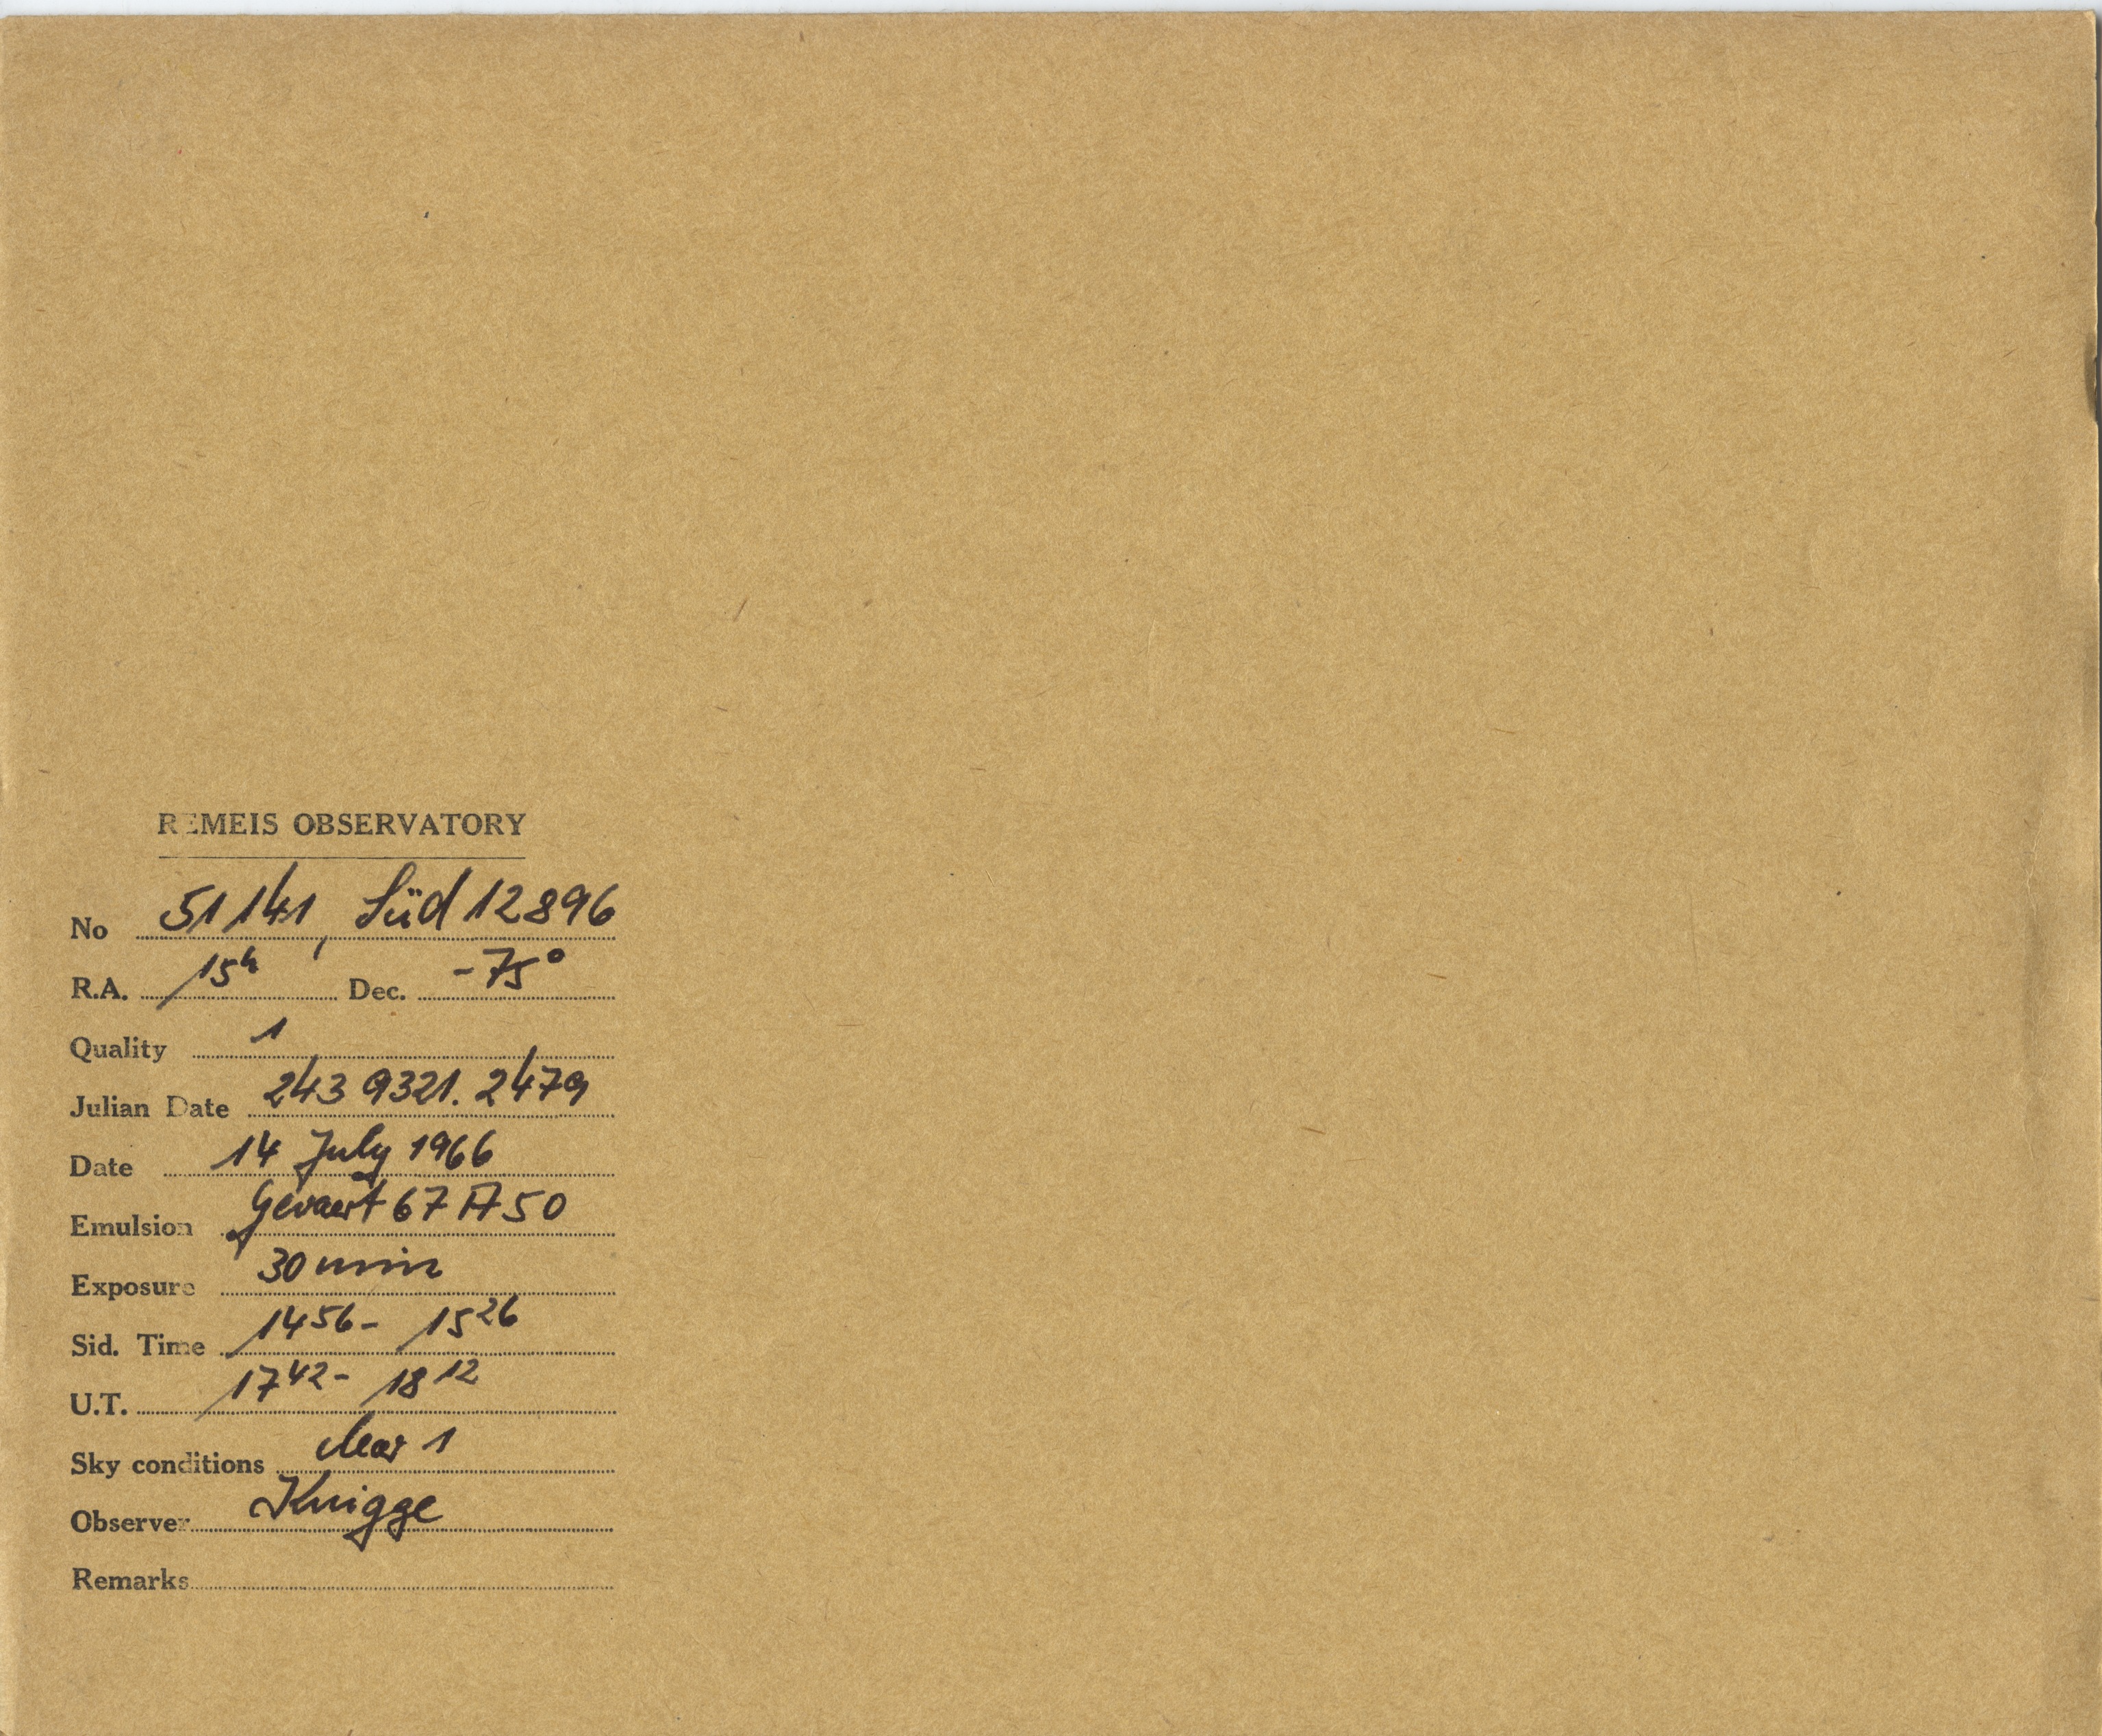 REMEIS OBSERVATORY
No 51141, Süd 12896
R.A. 15h Dec. -75°
Quality 1
Julian Date 243 9321.2479
Date 14 July 1966
Emulsion Gevaert 67 A 50
Exposure 30 min
Sid. Time 14 56 - 15 26
U.T. 17 42 - 18 12
Sky conditions clear 1
Observer Knigge
Remarks